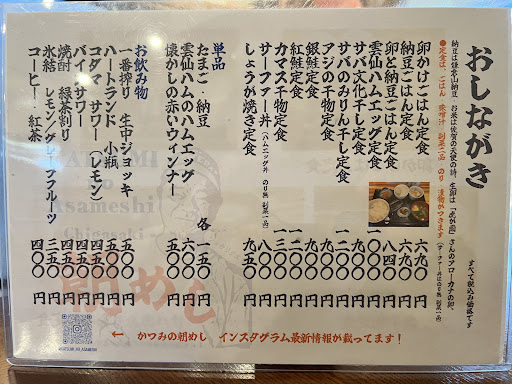 おしながき
すべて税込み価格です
納豆は鎌倉山納豆 お米は佐賀の天使の詩、生卵は「虎が園」さんのアローカナの卵、
●定食は、ごはん 味噌汁 副菜一品 のり 漬物がつきます(サーファー丼はのり無 副菜一品)
卵かけごはん定食 六九〇円
納豆ごはん定食 六九〇円
卵と納豆ごはん定食 八四〇円
雲仙ハムエッグ定食 円
サバ文化干し定食 円
サバのみりん干し定食 円
アジの干物定食 円
銀鮭定食 円
紅鮭定食 円
カマス干物定食 円
サーファー丼(ハムエッグ丼 のり無 副菜一品) 円
しょうが焼き定食 九五〇円
単品
たまご・納豆 各 一五〇円
雲仙ハムのハムエッグ 円
懐かしの赤いウィンナー 五〇〇円
お飲み物
一番搾り 生中ジョッキ 五五〇円
ハートランド 小瓶 円
コダマ サワー(レモン) 四五〇円
バイスサワー 四五〇円
焼酎 緑茶割り 四五〇円
氷結 レモン/グレープフルーツ 三五〇円
コーヒー・紅茶 四〇〇円
← かつみの朝めし インスタグラム最新情報が載ってます!
KATSUMI
No
Asameshi
Chigasaki
朝めし